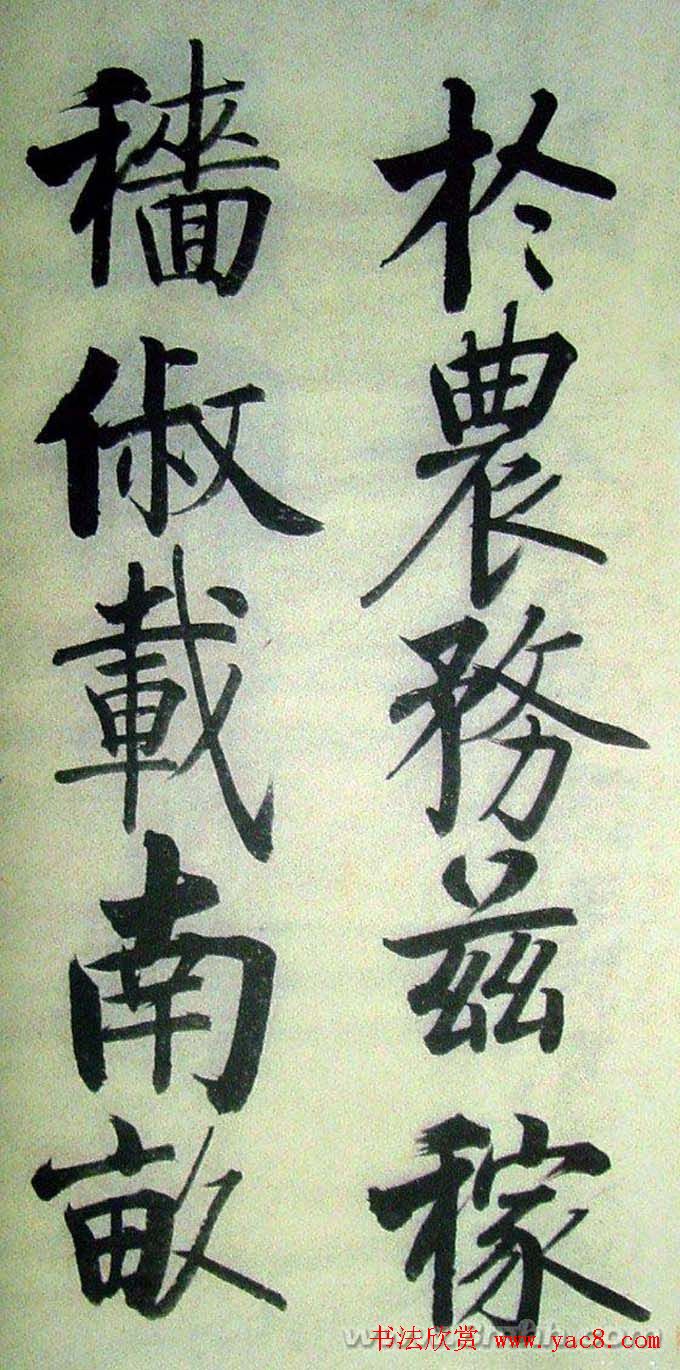 於農務兹稼
穡俶載南畝
书法欣赏 www.yac8.com